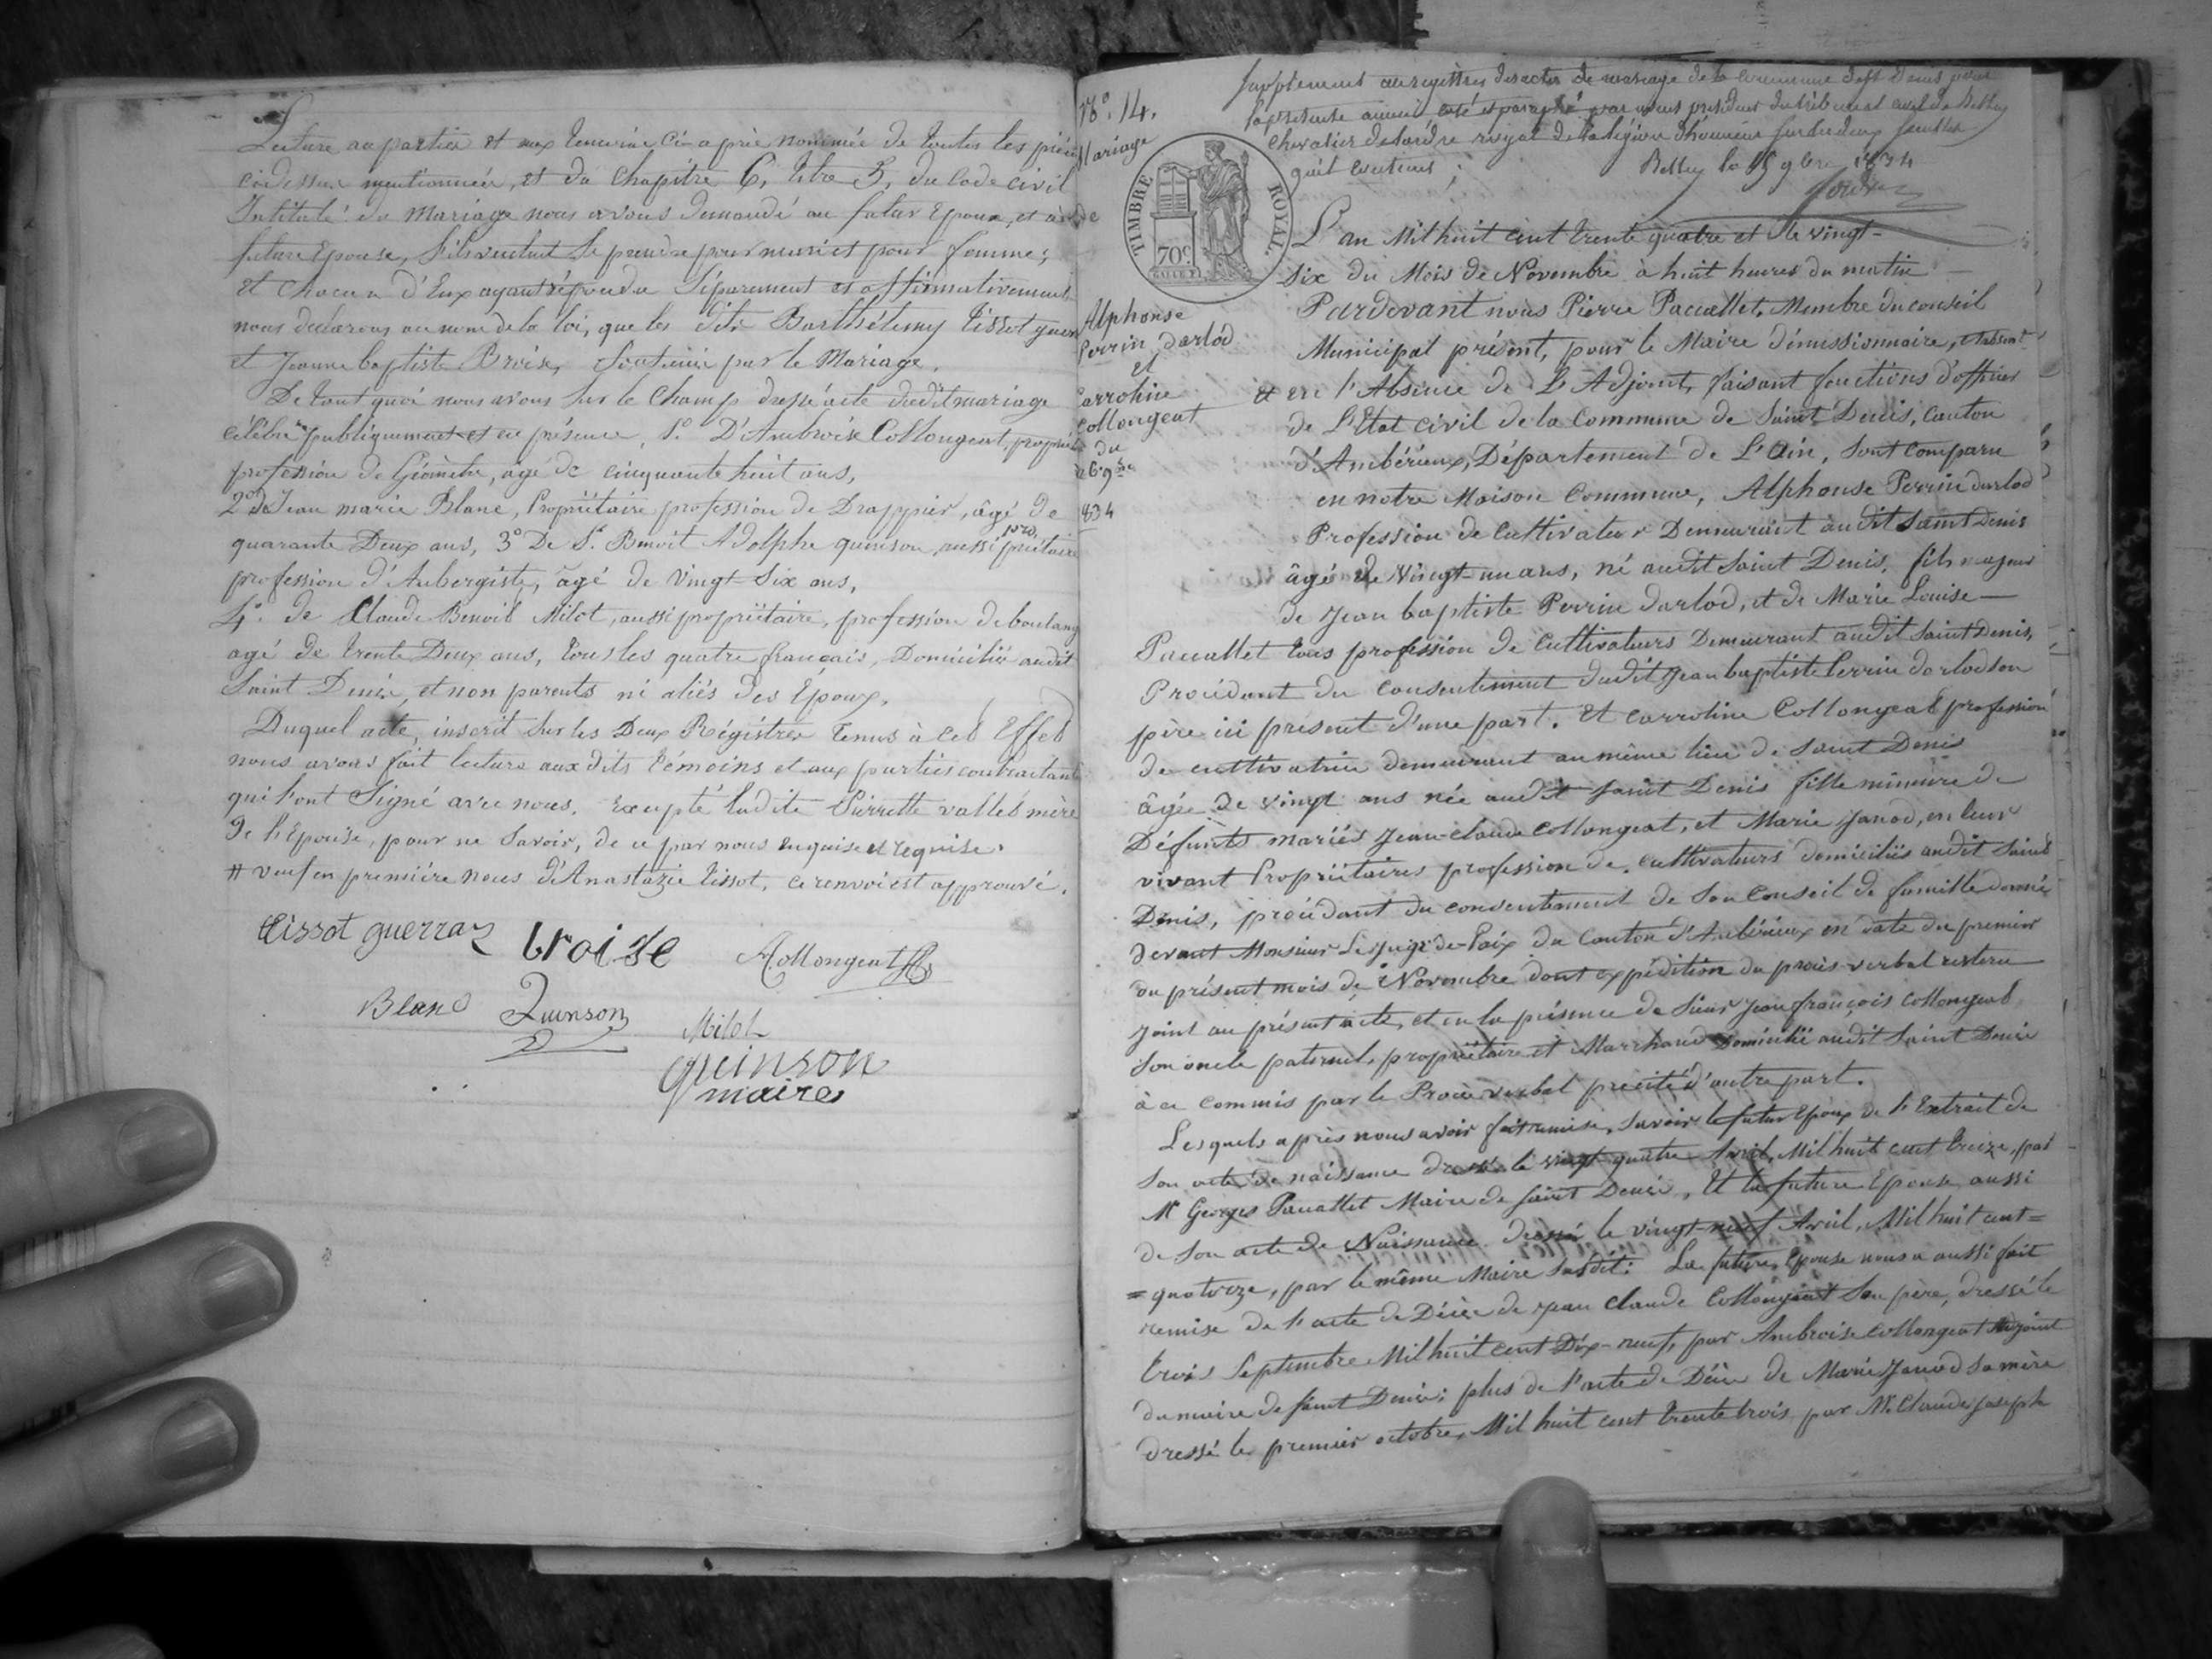 Lecture aux parties et aux temoins ci-après nommés de toutes les pièces
cidessus mentionnées, et du Chapitre 6, titre 5, du Code civil
Intitulé du Mariage nous avons demandé au futur Epoux, et à la
future Epouse, s'ils veulent se prendre pour mari et pour femme;
et chacun d'Eux ayant répondu séparement et affirmativement
nous declarons au nom de la loi, que les dits Barthélemy Tissot guerraz
et Jeanne baptiste Broise, sont unis par le Mariage.
De tout quoi nous avons sur le Champ dressé acte dudit mariage
célébré publiquement et en présence, 1º D'Ambroise Collongeat, propriétaire
profession de Géomètre, âgé de cinquante huit ans,
2º de Jean marie Blanc, Propriëtaire profession de Drappier, âgé de
quarante Deux ans, 3º De Sr. Benoit Adolphe quinson, aussi propriétaire
profession d'Aubergiste, âgé de vingt-six ans,
4º. de Claude Benoit Milot, aussi propriëtaire, profession de boulang
agé de trente Deux ans, tous les quatre français, Domiciliés audit
Saint Denis, et non parents ni aliés des Epoux.
Duquel acte, inscrit sur les Deux Régistres tenus à cet Effet
nous avons fait lecture aux dits témoins et aux parties contractantes
qui l'ont Signé avec nous. Excepté ladite Pierrette vallet mère
de l'Epouse, pour ne savoir, de ce par nous enquise et requise.
# veuf en première noces d'Anastazie tissot, ce renvoi est approuvé.
tissot guerraz
broise
A. Collongeat
Blanc
Quinson
Milot
quinson
maire
Nº. 14.
Mariage
de
Alphonse
Perrin darlod
et
Carroline
Collongeat
du
26. 9bre
1834
TIMBRE ROYAL
70c
Supplement au registres des actes de mariage de la commune de St Denis pour
la presente année coté et paraphé par nous president du tribunal civil de Belley
Chevalier de l'ordre royal de la légion d'honneur sur les deux feuilles
qu'il contient;
Belley le 15 9bre 1834
L'an Mil huit cent trente quatre et le vingt-
six du Mois de Novembre à huit heures du matin
Pardevant nous Pierre Pacuallet, Membre du conseil
Municipal présent, pour le Maire démissionnaire, et absent
& en l'Absence de L'Adjoint, faisant fonctions d'officier
de L'Etat civil de la Commune de Saint Denis, canton
d'Ambérieux, Département de L'Ain, sont comparu
en notre Maison Commune, Alphonse Perrin darlod
Profession de cultivateur Demeurant audit Saint Denis
âgé de vingt-un ans, né audit Saint Denis, fils majeur
de Jean baptiste Perrin darlod, et de Marie Louise
Pacuallet tous profession de cultivateurs Demeurant audit Saint Denis,
Procédant du consentement dudit Jean baptiste Perrin darlod son
père ici présent d'une part. Et Carroline Collongeat profession
de cultivatrice demeurant au même lieu de Saint Denis
âgée de vingt ans née audit Saint Denis fille mineure de
Défunts mariés Jean-claude Collongeat, et Marie Janod, en leur
vivant Propriëtaires profession de cultivateurs domiciliés audit Saint
Denis, procédant du consentement de son Conseil de famille donné
devant Monsieur Le juge-de-Paix du Canton d'Ambérieux en date du premier
du présent mois de Novembre dont expédition du procès-verbal restera
joint au présent acte, et en la présence de Sieur Jean françois Collongeat
son oncle paternel, propriëtaire et Marchand Domicilié audit Saint Denis
à ce commis par le Procès verbal précité d'autre part.
Lesquels après nous avoir fait remise, savoir le futur Epoux de l'Extrait de
son acte de naissance dressé le vingt-quatre Avril, Mil huit cent treize, par
Mr Georges Pacuallet Maire de Saint Denis, Et la future Epouse aussi
de son acte de Naissance dressé le vingt-neuf Avril, Mil huit cent=
=quatorze, par le même Maire susdit; La future Epouse nous a aussi fait
remise de l'acte de Décès de Jean Claude Collongeat son père, dressé le
trois Septembre Mil huit cent Dix-neuf, par Ambroise Collongeat Adjoint
du maire de Saint Denis; plus de l'acte de Décès de Marie Janod sa mère
dressé le premier octobre, Mil huit cent trente trois par Mr. Claude joseph